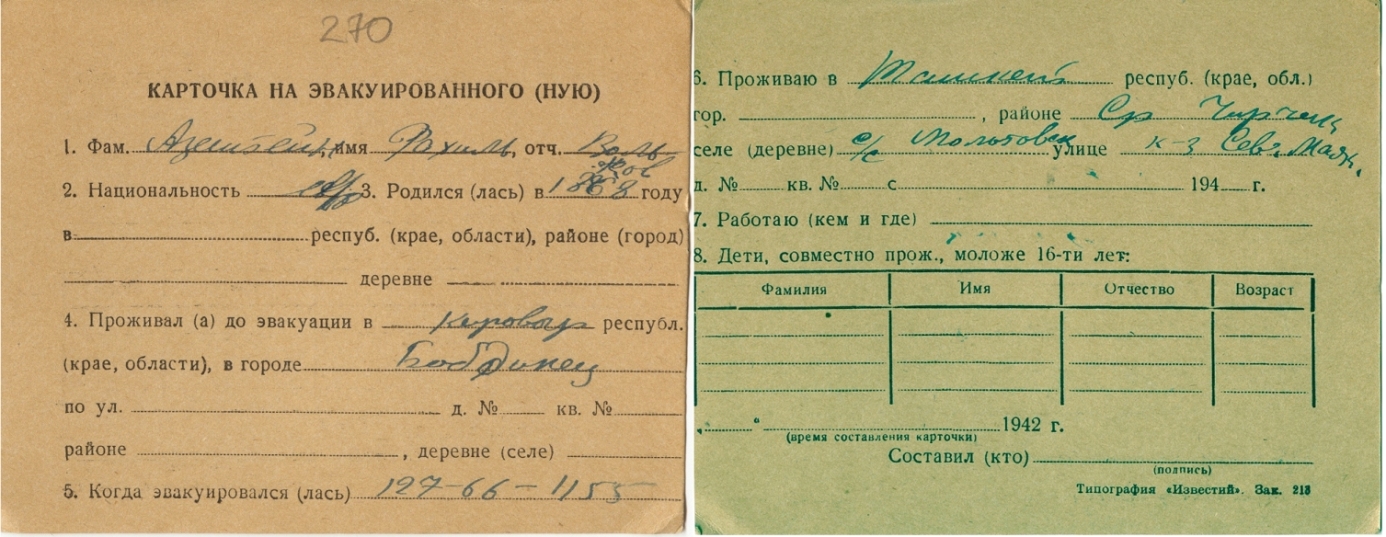 270
КАРТОЧКА НА ЭВАКУИРОВАННОГО (НУЮ)
1. Фам. имя Рахиль, отч. Воль
фов
2. Национальность евр 3. Родился (лась) в 1868 году
в респуб. (крае, области), районе (город)
деревне
4. Проживал (а) до эвакуации в Кировогр республ.
(крае, области), в городе Бобринец
по ул. д. № кв. №
районе , деревне (селе)
5. Когда эвакуировался (лась) 127-66-1155
6. Проживаю в Ташкент респуб. (крае, обл.)
гор. , районе Ср Чирчик
селе (деревне) с/с Молотовск улице к-з Сев. Маяк.
д. № кв. № с 194 г.
7. Работаю (кем и где)
8. Дети, совместно прож., моложе 16-ти лет:
Фамилия Имя Отчество Возраст
„ “ 1942 г.
(время составления карточки)
Составил (кто)
(подпись)
Типография «Известий». Зак. 213